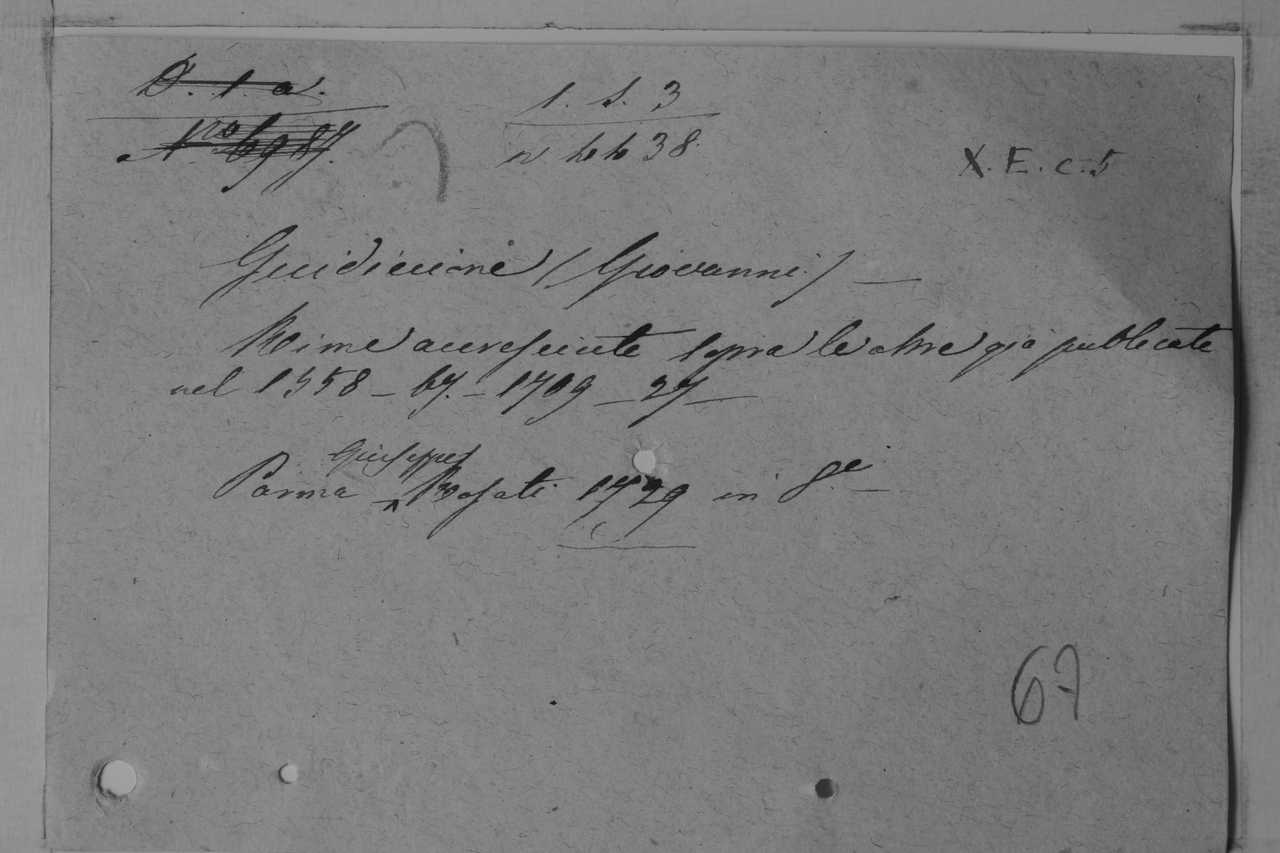 D. 1. a.
1. S. 3
Nro 6987.
n 4438
X. E. c. 5
Guidiccioni (Giovanni) —
Rime accresciute sopra le altre già publicate
nel 1558 – 67. – 1709 – 27 —
Giuseppe
Parma Rosati 1729 in 8.e —
67